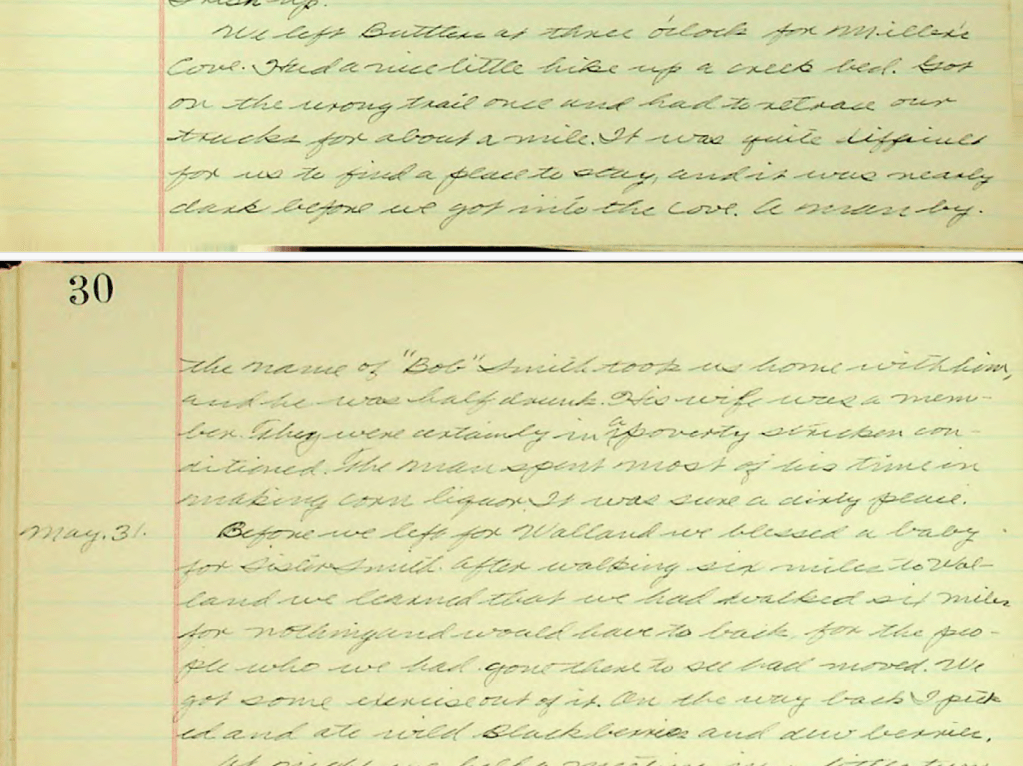 We left Buttlers at three o'clock for Miller's
Cove. Had a nice little hike up a creek bed. Got
on the wrong trail once and had to retrace our
tracks for about a mile. It was quite difficult
for us to find a place to stay, and it was nearly
dark before we got into the cove. A man by.
30
the name of "Bob" Smith took us home with him,
and he was half drunk. His wife was a mem-
ber. They were certainly in a poverty stricken con-
ditioned. The man spent most of his time in
making corn liquor. It was sure a dirty place.
May. 31.
Before we left for Walland we blessed a baby
for Sister Smith. After walking six miles to Wal-
land we learned that we had walked six miles
for nothing and would have to back for the peo-
ple who we had gone there to see had moved. We
got some exercise out of it. On the way back I pick
ed and ate wild Blackberries and dew berries.
At night we held a meeting in